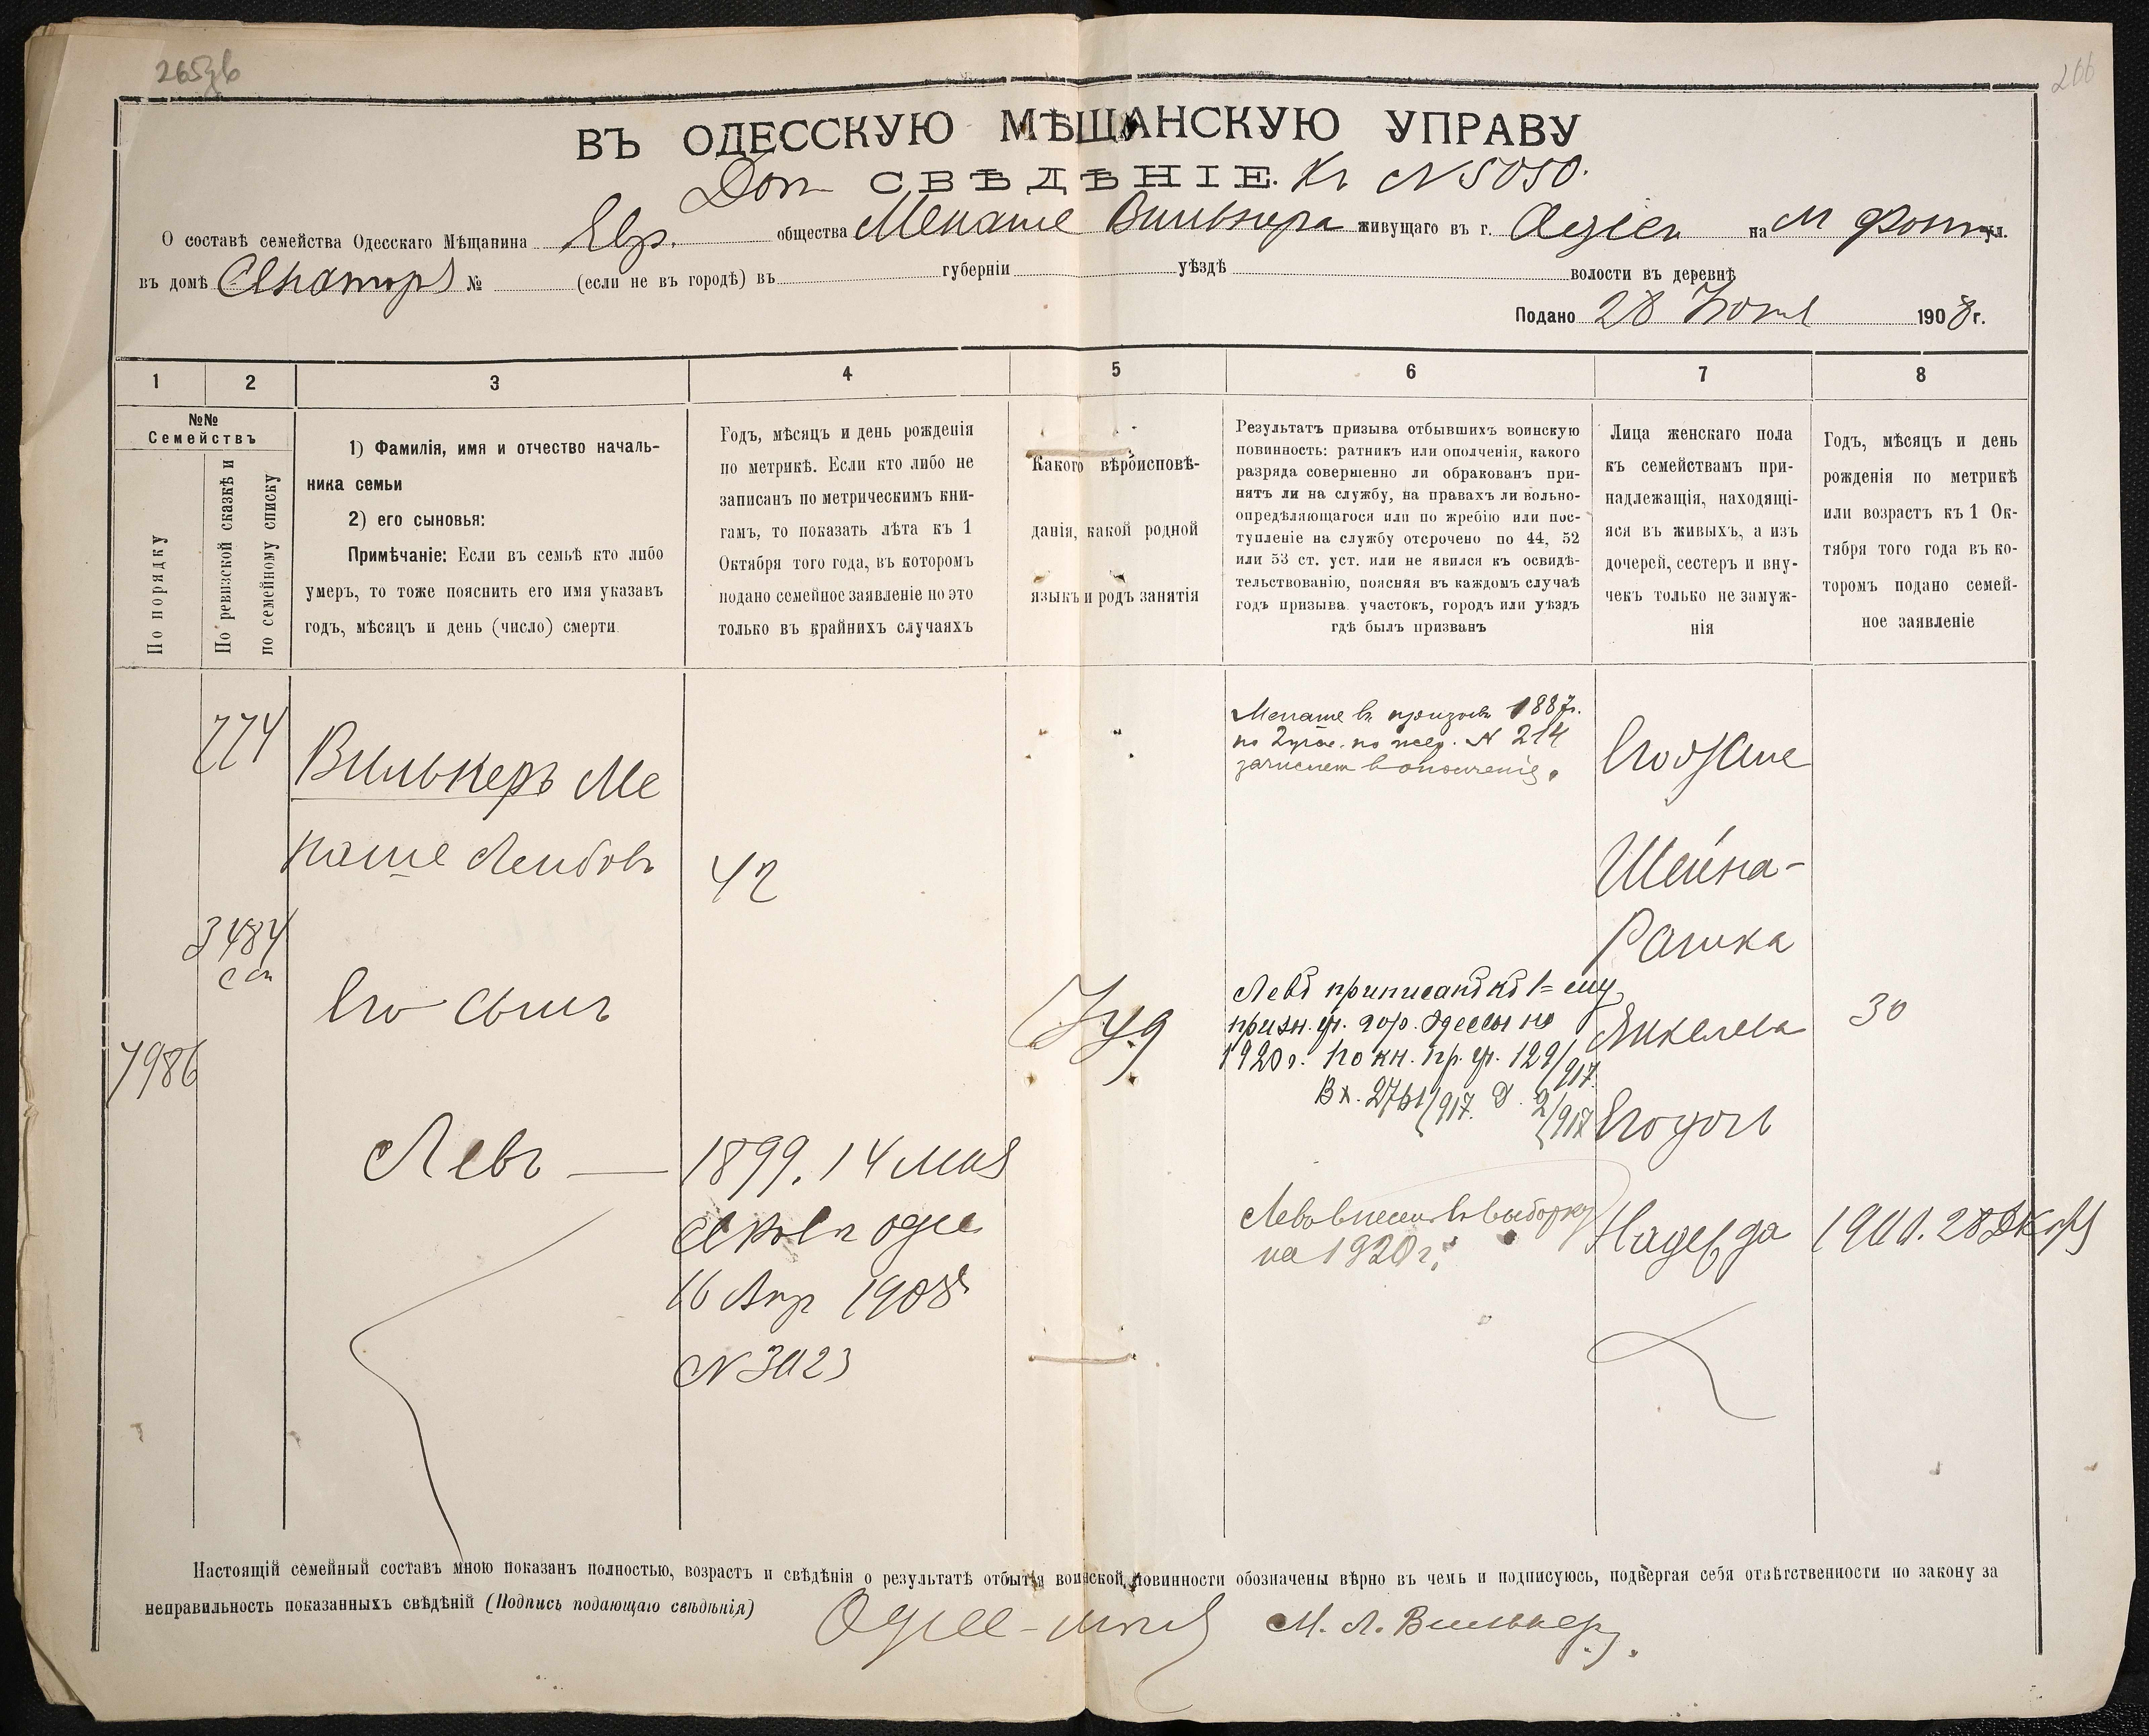 265
266
ВЪ ОДЕССКУЮ МѢЩАНСКУЮ УПРАВУ
Доп СВѢДѢНІЕ. Къ N 5050.
О составѣ семейства Одесскаго Мѣщанина Евр. общества Менаше Вилькера живущаго въ г. Одессѣ на М Фонт ул.
въ домѣ № (если не въ городѣ) въ губерніи уѣздѣ волости въ деревнѣ
Подано 28 1908 г.
1 2 3 4 5 6 7 8
№№
Семействъ
По порядку
По ревизской сказкѣ и
по семейному списку
1) Фамилія, имя и отчество началь-
ника семьи
2) его сыновья:
Примѣчаніе: Если въ семьѣ кто либо
умеръ, то тоже пояснить его имя указавъ
годъ, мѣсяцъ и день (число) смерти
Годъ, мѣсяцъ и день рожденія
по метрикѣ. Если кто либо не
записанъ по метрическимъ кни-
гамъ, то показать лѣта къ 1
Октября того года, въ которомъ
подано семейное заявленіе но это
только въ крайнихъ случаяхъ
Какого вѣроисповѣ-
данія, какой родной
языкъ и родъ занятія
Результатъ призыва отбывшихъ воинскую
повинность: ратникъ или ополченія, какого
разряда совершенно ли обракованъ при-
нятъ ли на службу, на правахъ ли вольно-
опредѣляющагося или по жребію или пос-
тупленіе на службу отсрочено по 44, 52
или 53 ст. уст. или не явился къ освидѣ-
тельствованію, поясняя въ каждомъ случаѣ
годъ призыва участокъ, городъ или уѣздъ
гдѣ былъ призванъ
Лица женскаго пола
къ семействамъ при-
надлежащія, находящі-
яся въ живыхъ, а изъ
дочерей, сестеръ и вну-
чекъ только не замуж-
нія
Годъ, мѣсяцъ и день
рожденія по метрикѣ
или возрастъ къ 1 Ок-
тября того года въ ко-
торомъ подано семей-
ное заявленіе
774
Вилькеръ Ме
наше Лейбовъ
42
3484
с сп
7986
Его сынъ
Левъ —
1899. 14 мая
16 Апр 1908
N 3023
Іуд
Менаше въ призывъ 1887г.
по 2 участ. по жер. N 214
зачисленъ въ ополченіе.
Левъ приписанъ къ 1=му
призн. уч. гор. Одессы на
1920 г. по кн. пр. уч. 129/917.
Вх. 2761/917. Д. 2/917
Левъ внесенъ въ выборку
на 1920 г.
Его жена
Шейна-
Рашка
Янкелева
30
Его дочь
Надежда
28 Декабря
Настоящій семейный составъ мною показанъ полностью, возрастъ и свѣдѣнія о результатѣ отбытія воинской повинности обозначены вѣрно въ чемъ и подписуюсь, подвергая себя отвѣтственности по закону за
неправильность показанныхъ свѣдѣній (Подпись подающаго свѣдѣнія)
М. Л. Вилькеръ.